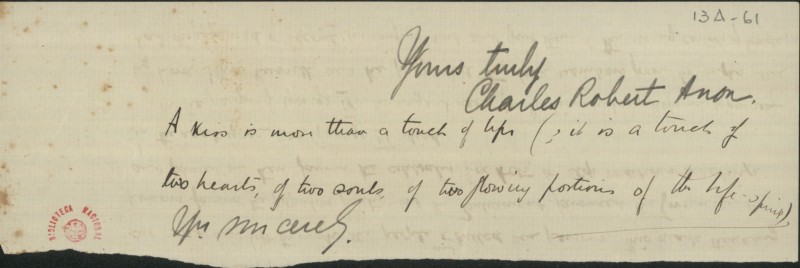 13A-61
Yours truly
Charles Robert Anon.
A kiss is more than a touch of lips (; it is a touch of
two hearts, of two souls, of two flowing portions of the life-spirit)
Yrs sincerely.
BIBLIOTECA NACIONAL